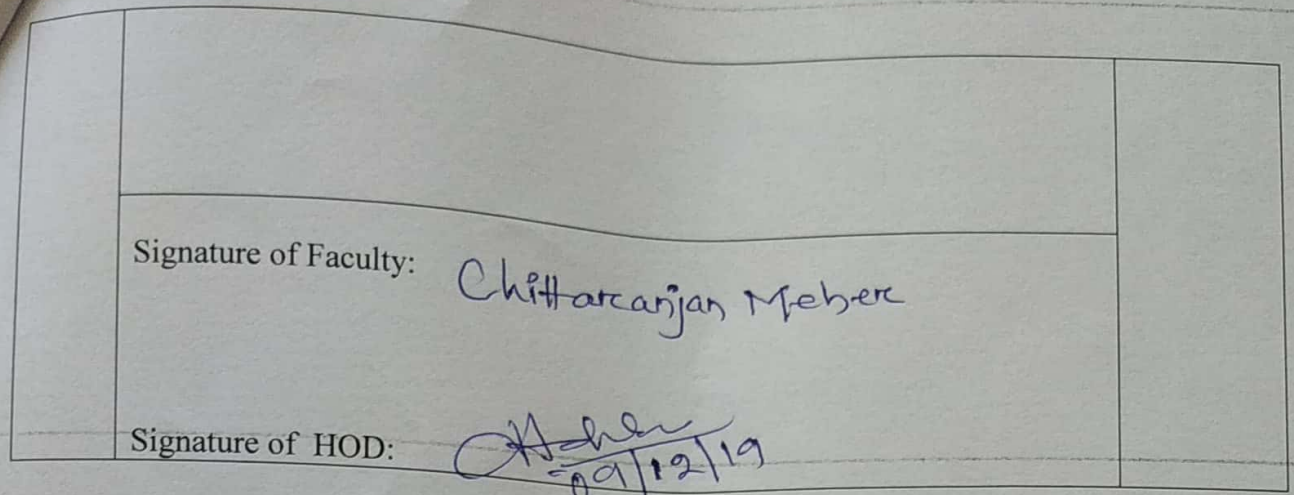 Signature of Faculty: Chittaranjan Meher
Signature of HOD:
09/12/19